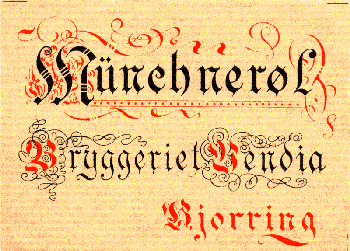 Münchnerøl
Bryggeriet Vendia
Hjorring